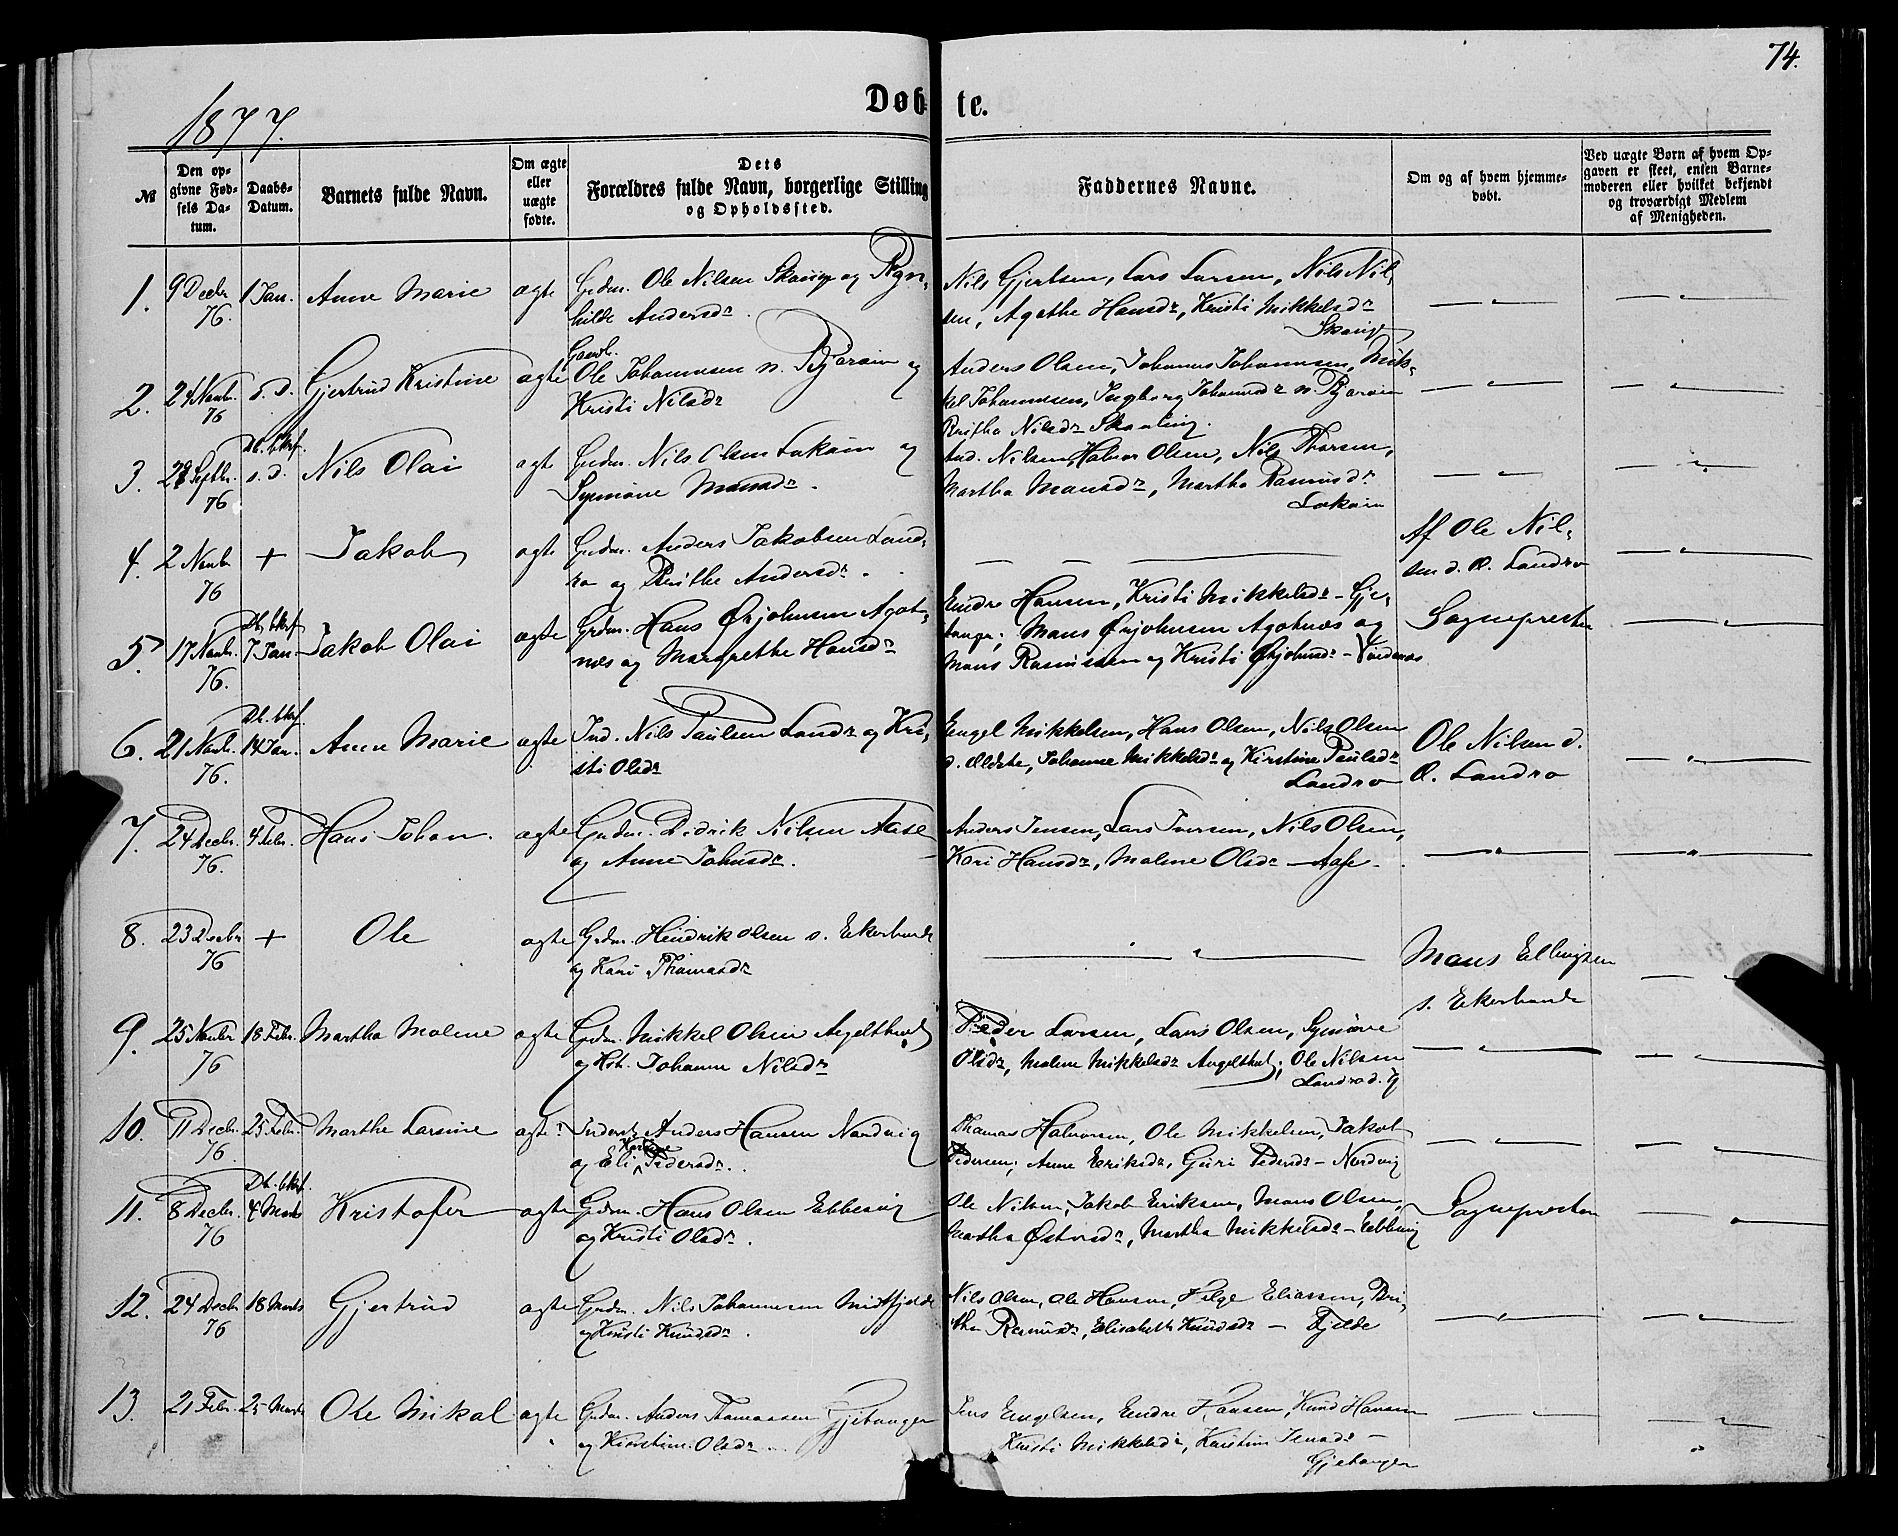 74.
1877.
Døbte.
№
Den opgivne Fødsels Datum.
Daabs-Datum.
Barnets fulde Navn.
Om ægte eller uægte fødte.
Dets Forældres fulde Navn, borgerlige Stilling og Opholdssted.
Faddernes Navne.
Om og af hvem hjemmedøbt.
Ved uægte Børn af hvem Opgaven er skeet, enten Barnemoderen eller hvilket bekjendt og troværdigt Medlem af Menigheden.
1. 9 Decbr. 76. 1 Jan. Anne Marie ægte Grdm. Ole Nilsen Skauge og Ragn-
hilde Andersdr.
Nils Gjertsen, Lars Larsen, Nils Nil-
sen, Agathe Hansdr, Kristi Mikkelsdr
Skauge
2. 24 Novbr. 76 s.d. Gjertrud Kristine ægte Ole Johannesen n. Bjorøin og
Kristi Nilsdr
Anders Olsen, Johannes Johannesen, Mik-
kel Johannesen, Ingborg Johansdr n. Bjorøin
Nilsdr
3. 28 Septbr. 76 s.d. Nils Olai ægte Grdm. Nils Olsen Løkøin og
Synnöve Monsdr.
And. Nilsen, Halvor Olsen, Nils
Martha Monsdr, Martha Rasmusdr
Løkøin
4. 2 Novbr 76 + Jakob ægte Grdm. Anders Jakobsen Land-
rø og Brithe Andersdr.
Af Ole Nil-
sen d. Æ. Landrø
5. 17 Novbr. 76. 7 Jan. Jakob Olai ægte Grdm. Hans Ørjohnsen Agot-
nes og Margrethe Hansdr
Endre Hansen, Kristi Mikkelsdr - Gje-
tanger; Mons Ørjohnsen Agotnæs og
Mons Rasmussen og Kristi Ørjohnsdr -
Sognepresten
6. 21 Novbr. 76. 14 Jan. Anne Marie ægte Ind. Nils Paulsen Landrø og Kri-
sti Olsdr
Engel Mikkelsen, Hans Olsen, Nils Olsen
d. Ældste, Johanne Mikkelsdr og Kirstine Paulsdr
Landrø
Ole Nilsen d.
Æ. Landrø
7. 24 Decbr. 76. 4 Febr. Hans Johan. ægte Grdm. Didrik Nilsen Aase
og Anne Johnsdr.
Anders Jensen, Lars Iversen, Nils Olsen,
Kari Hansdr, Malene Olsdr - Aase.
8. 23 Decbr 76 + Ole ægte Grdm. Hindrik Olsen s. Ekerhovde
og Kari Thomasdr
Mons Ellingsen
s. Ekerhovde
9. 25 Novbr 76 18 Febr. Martha Malene ægte Grdm. Mikkel Olsen Angeltvedt
og Hst. Johanne Nilsdr
Peder Larsen, Lars Olsen, Synnöve
Olsdr, Malene Mikkelsdr Angeltvedt; Ole Nilsen
Landrø d. y
10. 11 Decbr. 76. 25 Febr. Marthe Larsine ægte Inderst Anders Hansen Nordvig
og Eli Pedersdr.
Thomas Halvorsen, Ole Mikkelsen, Jakob
Pedersen; Anne Eriksdr, Guri Pedersdr - Nordvig
11. 8 Decbr. 76 4 Marts Kristofer ægte Grdm. Hans Olsen Ebbesvig
og Kristi Olsdr.
Ole Nilsen, Jakob Eriksen, Mons Olsen,
Martha Østensdr, Martha Mikkelsdr - Ebbesvig
Sognepresten
12. 24 Decbr 76 18 Marts Gjertrud ægte Grdm. Nils Johannesen Midtfjelde
og Kristi Knudsdr.
Nils Olsen, Ole Hansen, Helge Eliassen, Bri-
the Rasmusdr, Elisabeth Knudsdr - Fjelde
13. 21 Febr. 25 Marts Ole Mikal ægte Grdm. Anders Thomassen Gjetanger
og Kirstine Olsdr.
Jens Engelsen, Endre Hansen, Knud Hansen
Kristi Mikkelsdr, Karstine Jensdr -
Gjetanger